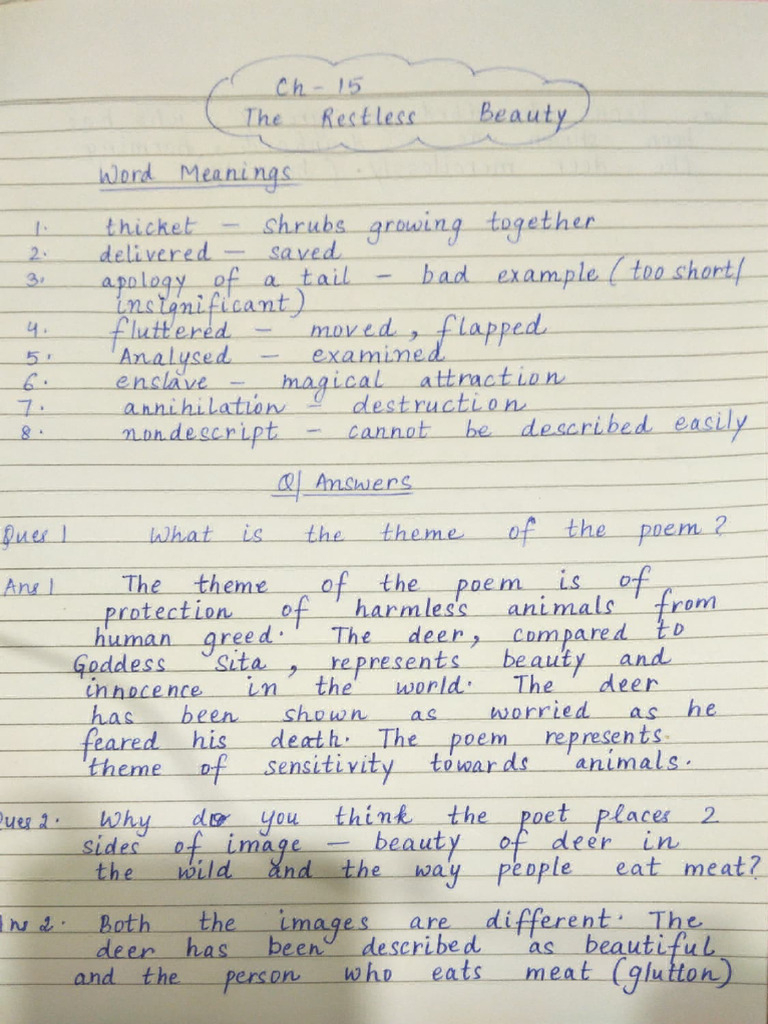 Ch - 15
The Restless Beauty
Word Meanings
1. thicket - shrubs growing together
2. delivered - saved
3. apology of a tail - bad example (too short/
insignificant)
4. fluttered - moved, flapped
5. Analysed - examined
6. enslave - magical attraction
7. annihilation - destruction
8. nondescript - cannot be described easily
Q/ Answers
Ques 1 What is the theme of the poem?
Ans 1 The theme of the poem is of
protection of harmless animals from
human greed. The deer, compared to
Goddess Sita, represents beauty and
innocence in the world. The deer
has been shown as worried as he
feared his death. The poem represents
theme of sensitivity towards animals.
Ques 2. Why do you think the poet places 2
sides of image - beauty of deer in
the wild and the way people eat meat?
Ans 2. Both the images are different. The
deer has been described as beautiful
and the person who eats meat (glutton)